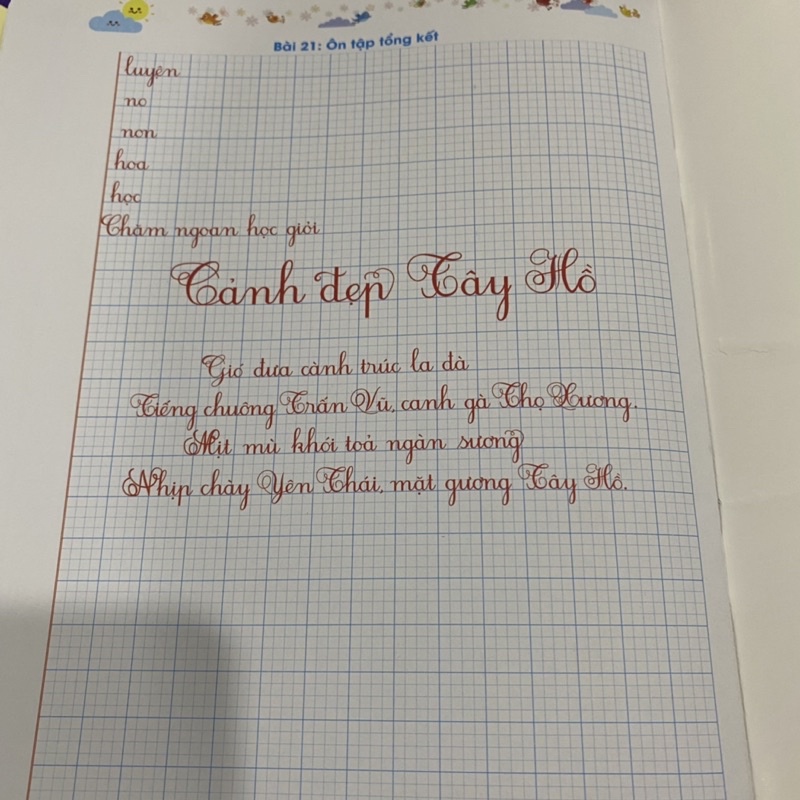 Bài 21: Ôn tập tổng kết
luyện
no
non
hoa
học
Chăm ngoan học giỏi
Cảnh đẹp Tây Hồ
Gió đưa cành trúc la đà
Tiếng chuông Trấn Vũ, canh gà Thọ Xương.
Mịt mù khói toả ngàn sương
Nhịp chày Yên Thái, mặt gương Tây Hồ.